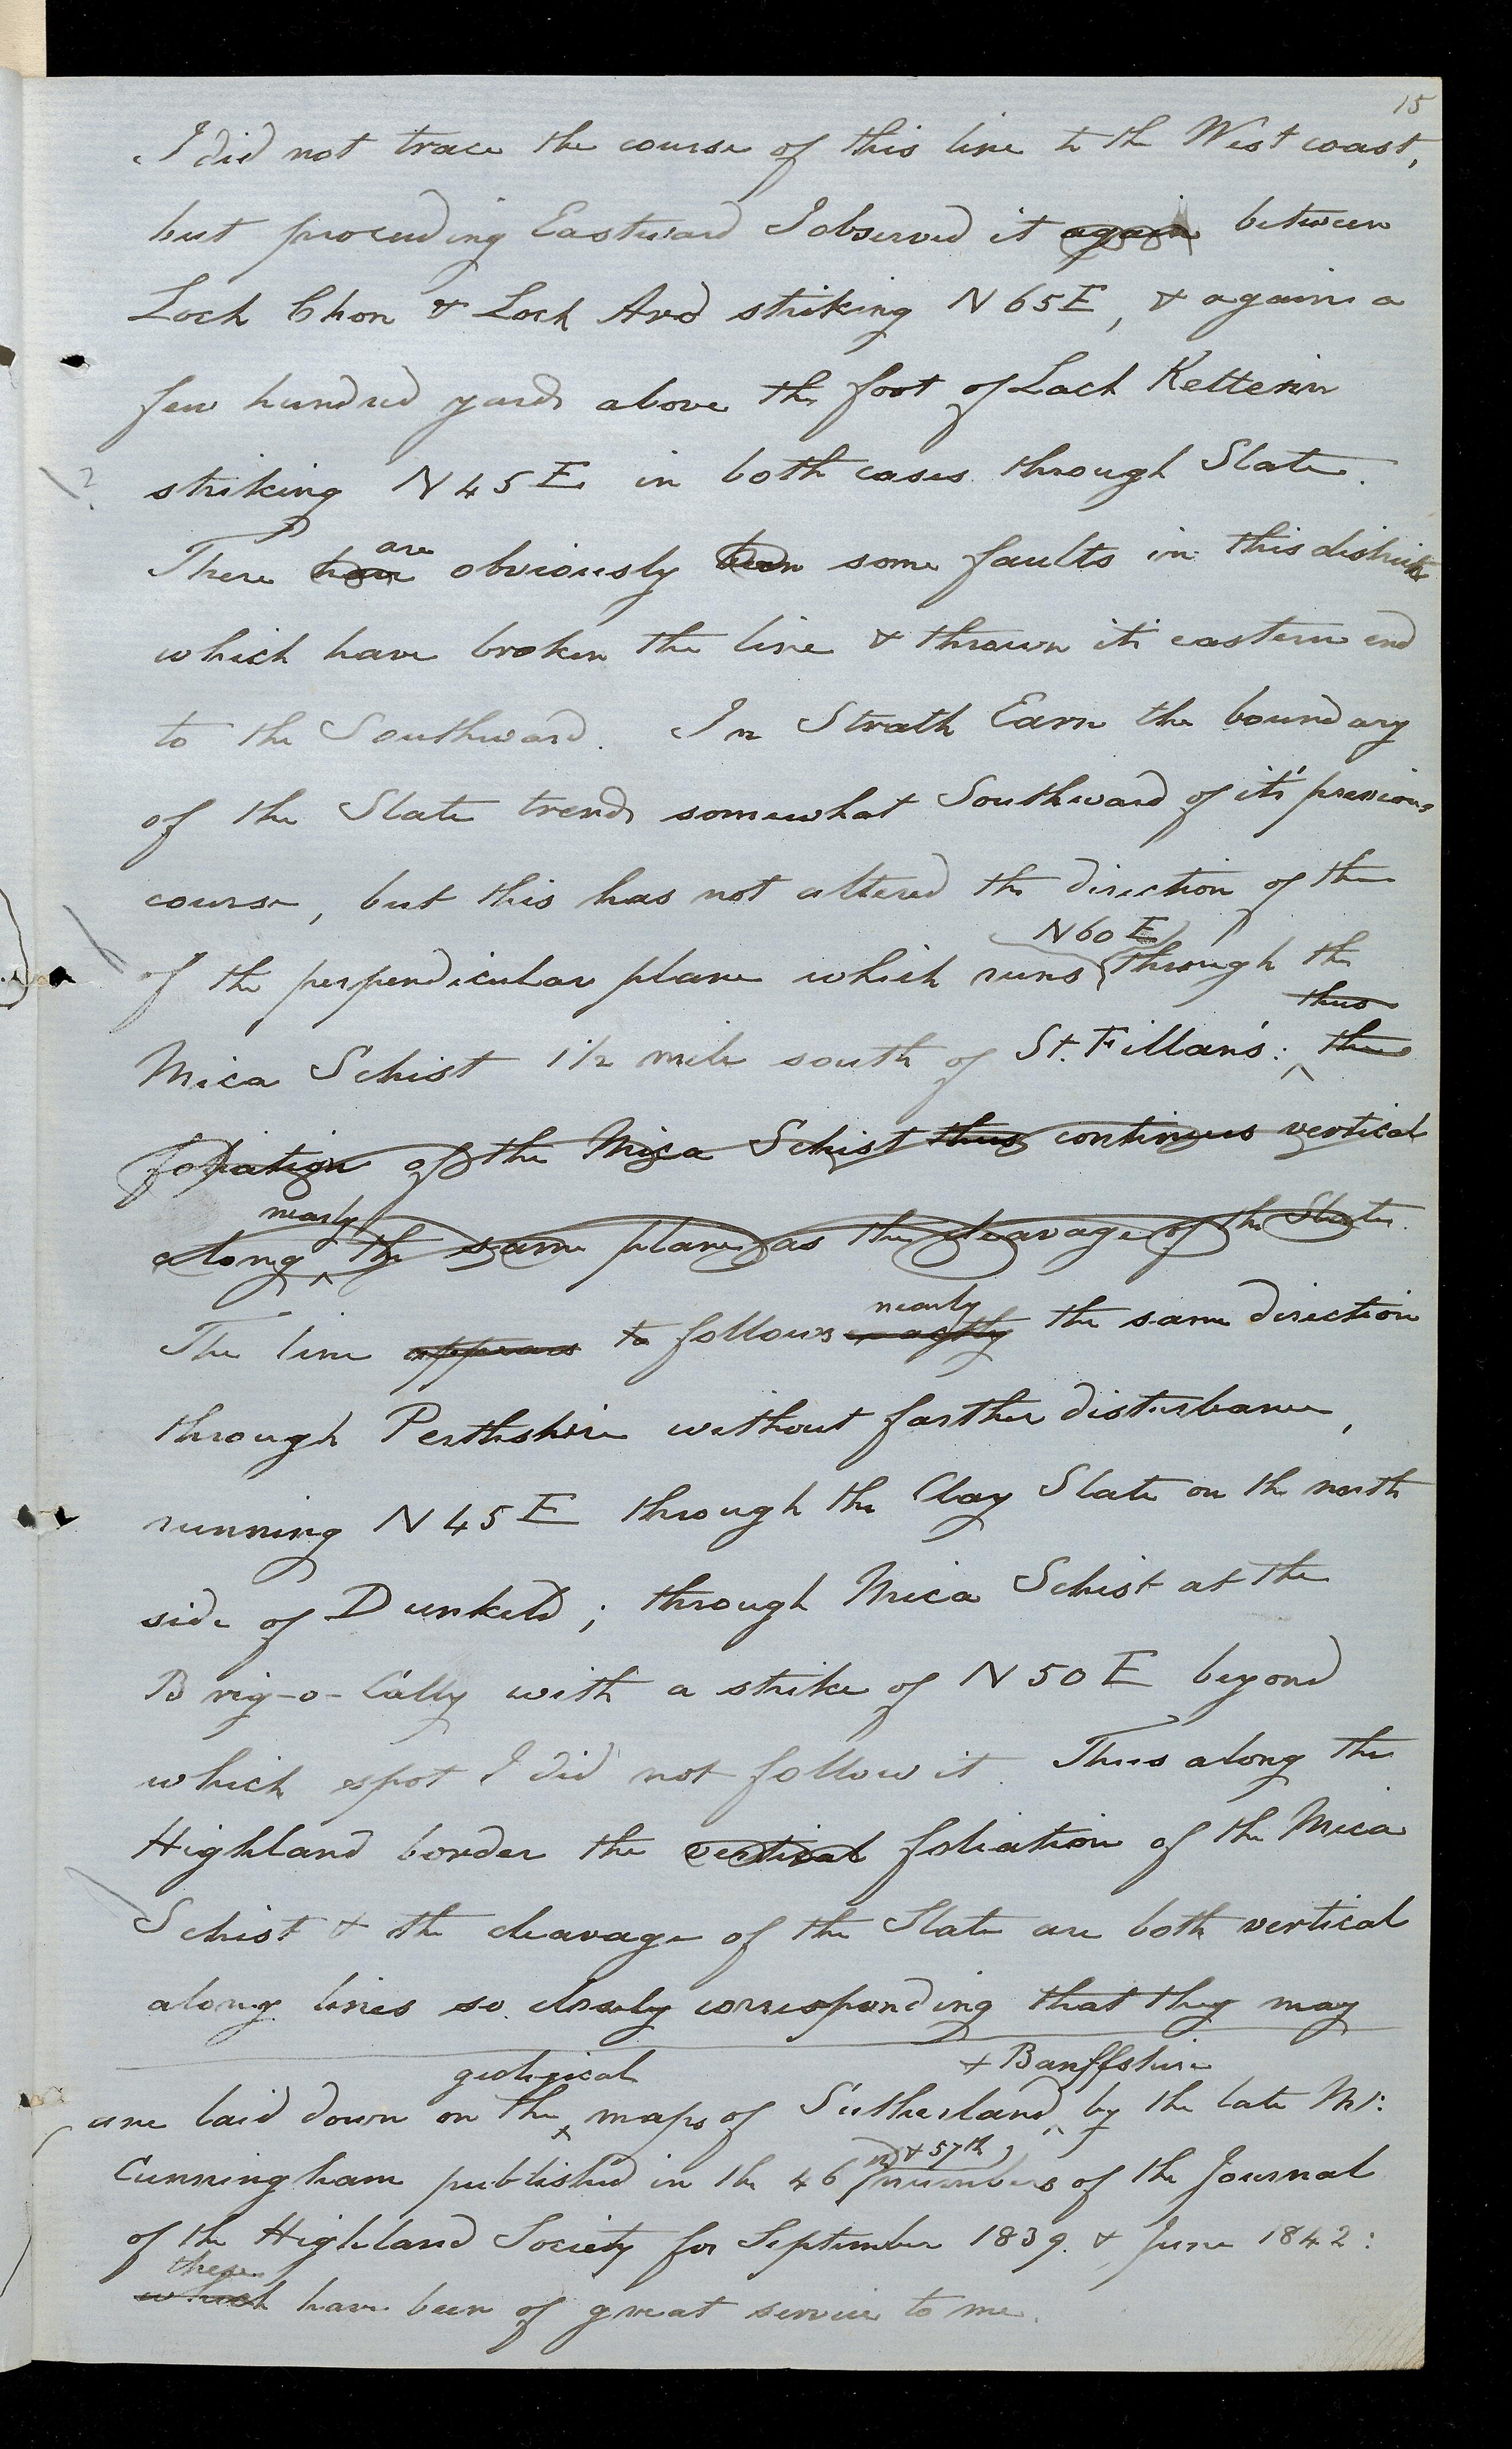 15
I did not trace the course of this line to the West coast,
but proceeding Eastward I observed it again between
Loch Chon & Loch Ard striking N 65 E, & again a
few hundred yards above the foot of Loch Ketterin
?
striking N 45 E in both cases through Slate.
are
There have obviously been some faults in this district
which have broken the line & thrown its eastern end
to the Southward. In Strath Earn the boundary
of the Slate trends somewhat Southward of it's previous
course, but this has not altered the direction of the
N 60 E
of the perpendicular plane which runs through the
thus
Mica Schist 1 1/2 mile south of St. Fillan's: the
foliation of the Mica Schist thus continues vertical
nearly
along the same plane as the cleavage of the Slate.
nearly
The line appears to follows exactly the same direction
through Perthshire without farther disturbance,
running N 45 E through the Clay Slate on the north
side of Dunkeld; through Mica Schist at the
Brig-o-Cally with a strike of N 50 E beyond
which spot I did not follow it. Thus along the
Highland border the vertical foliation of the Mica
Schist & the cleavage of the Slate are both vertical
along lines so closely corresponding that they may
geological & Banffshire
are laid down on the maps of Sutherland by the late Mr.
& 57th
Cunningham published in the 46 numbers of the Journal
of the Highland Society for September 1839. & June 1842:
these
which have been of great service to me.